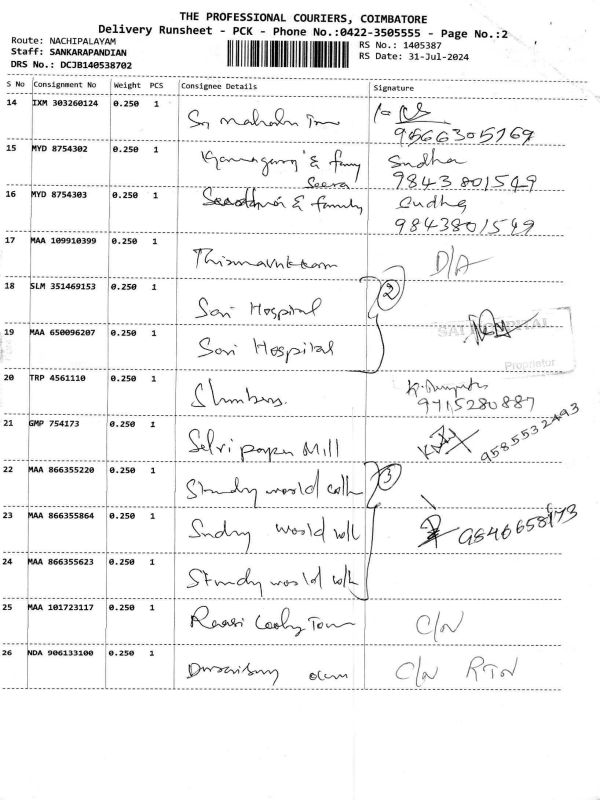 THE PROFESSIONAL COURIERS, COIMBATORE
Delivery Runsheet - PCK - Phone No.:0422-3505555 - Page No.:2
Route: NACHIPALAYAM
RS No.: 1405387
Staff: SANKARAPANDIAN
RS Date: 31-Jul-2024
DRS No.: DCJB140538702
S No Consignment No Weight PCS Consignee Details Signature
14 IXM 303260124 0.250 1 Sri
9566305769
15 MYD 8754302 0.250 1 & family Sudha
9843801549
16 MYD 8754303 0.250 1 & family Sudha
9843801549
17 MAA 109910399 0.250 1 D/A
18 SLM 351469153 0.250 1 Sai Hospital 2
19 MAA 650096207 0.250 1 Sai Hospital
SAI HOSPITAL
Proprietor
20 TRP 4561110 0.250 1
9715280887
21 GMP 754173 0.250 1 Selvi paper Mill 9585532493
22 MAA 866355220 0.250 1 world 3
23 MAA 866355864 0.250 1 world
24 MAA 866355623 0.250 1 world
25 MAA 101723117 0.250 1 C/N
26 NDA 906133100 0.250 1 C/N RTN